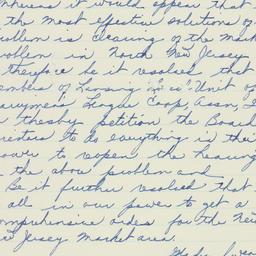 Whereas it would appear that
the most effective solutions of
problem is clearing of the mark
problem in North New Jersey
therefore be it resolved that
members of Unit of
Dairymens League Coop. Assn. I
thereby petition the Board
Directors to do everything in thei
power to reopen the hearing
the above problem and
Be it further resolved that
all in our power to get a
comprehensive order for the New
New Jersey Market area.